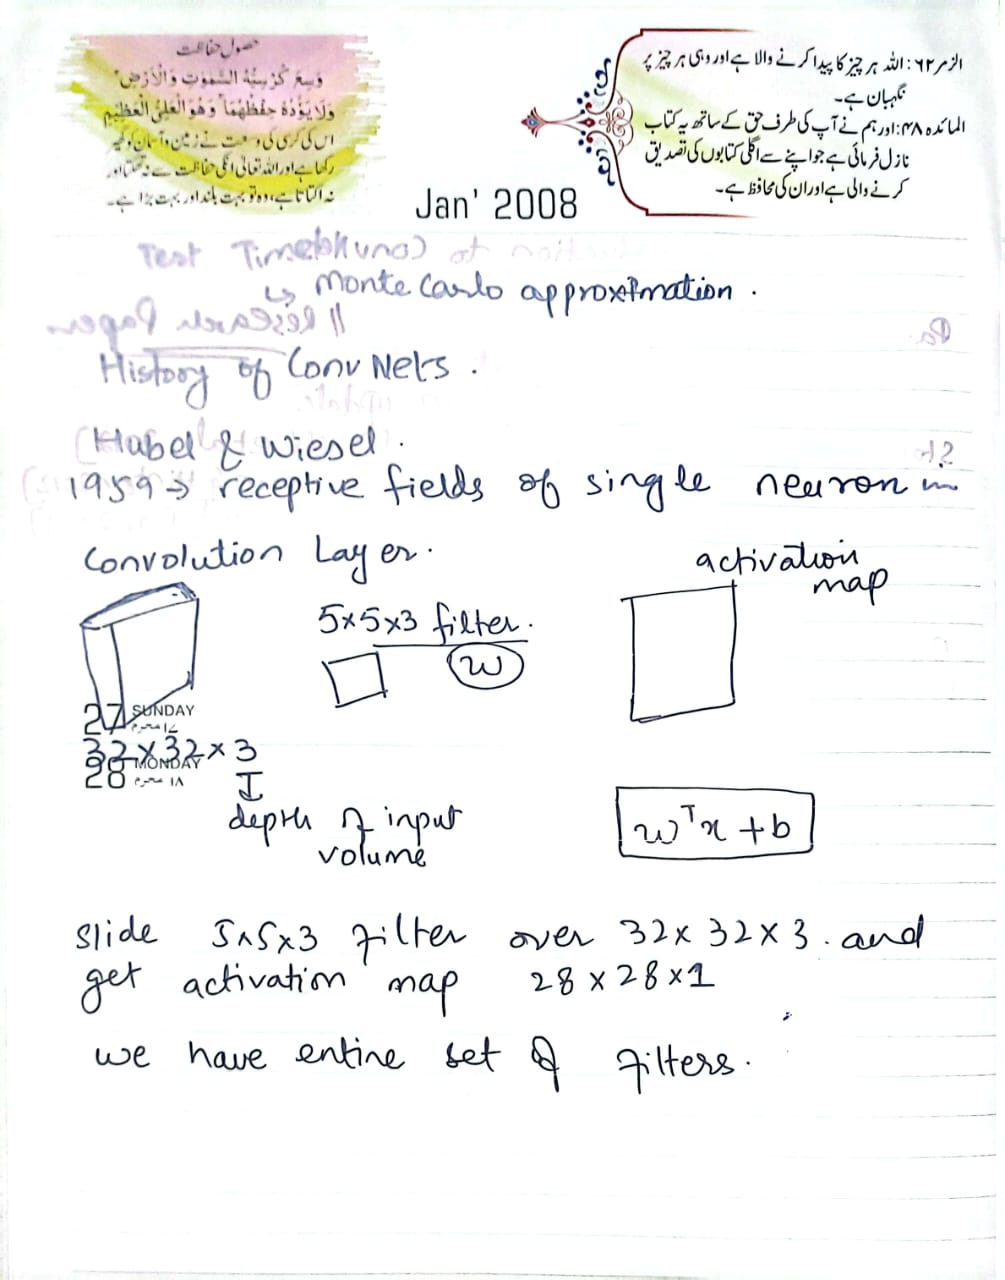 حصول حفاظت
وَسِعَ كُرْسِيُّهُ السَّمٰوٰتِ وَالْاَرْضَ ۚ
وَلَا يَـُٔوْدُهٗ حِفْظُهُمَا ۚ وَهُوَ الْعَلِيُّ الْعَظِيْمُ
اس کی کرسی کی وسعت نے زمین و آسمان کو گھیر
رکھا ہے اور اللہ تعالیٰ انکی حفاظت سے نہ تھکتا اور
نہ اکتاتا ہے، وہ تو بہت بلند اور بہت بڑا ہے۔
الزمر ۶۲: اللہ ہر چیز کا پیدا کرنے والا ہے اور وہی ہر چیز پر
نگہبان ہے۔
المائدہ ۴۸: اور ہم نے آپ کی طرف حق کے ساتھ یہ کتاب
نازل فرمائی ہے جو اپنے سے اگلی کتابوں کی تصدیق
کرنے والی ہے اور ان کی محافظ ہے۔
Jan' 2008
Test Time
↳ Monte Carlo approximation.
History of Conv Nets.
Hubel & Wiesel.
1959 → receptive fields of single neuron in
Convolution Layer.
activation
map
5×5×3 filter.
w
27 SUNDAY
۱۷ محرم
32×32×3
28 MONDAY
۱۸ محرم
depth of input
volume
wᵀx + b
slide 5×5×3 filter over 32×32×3. and
get activation map 28×28×1
we have entire set of filters.